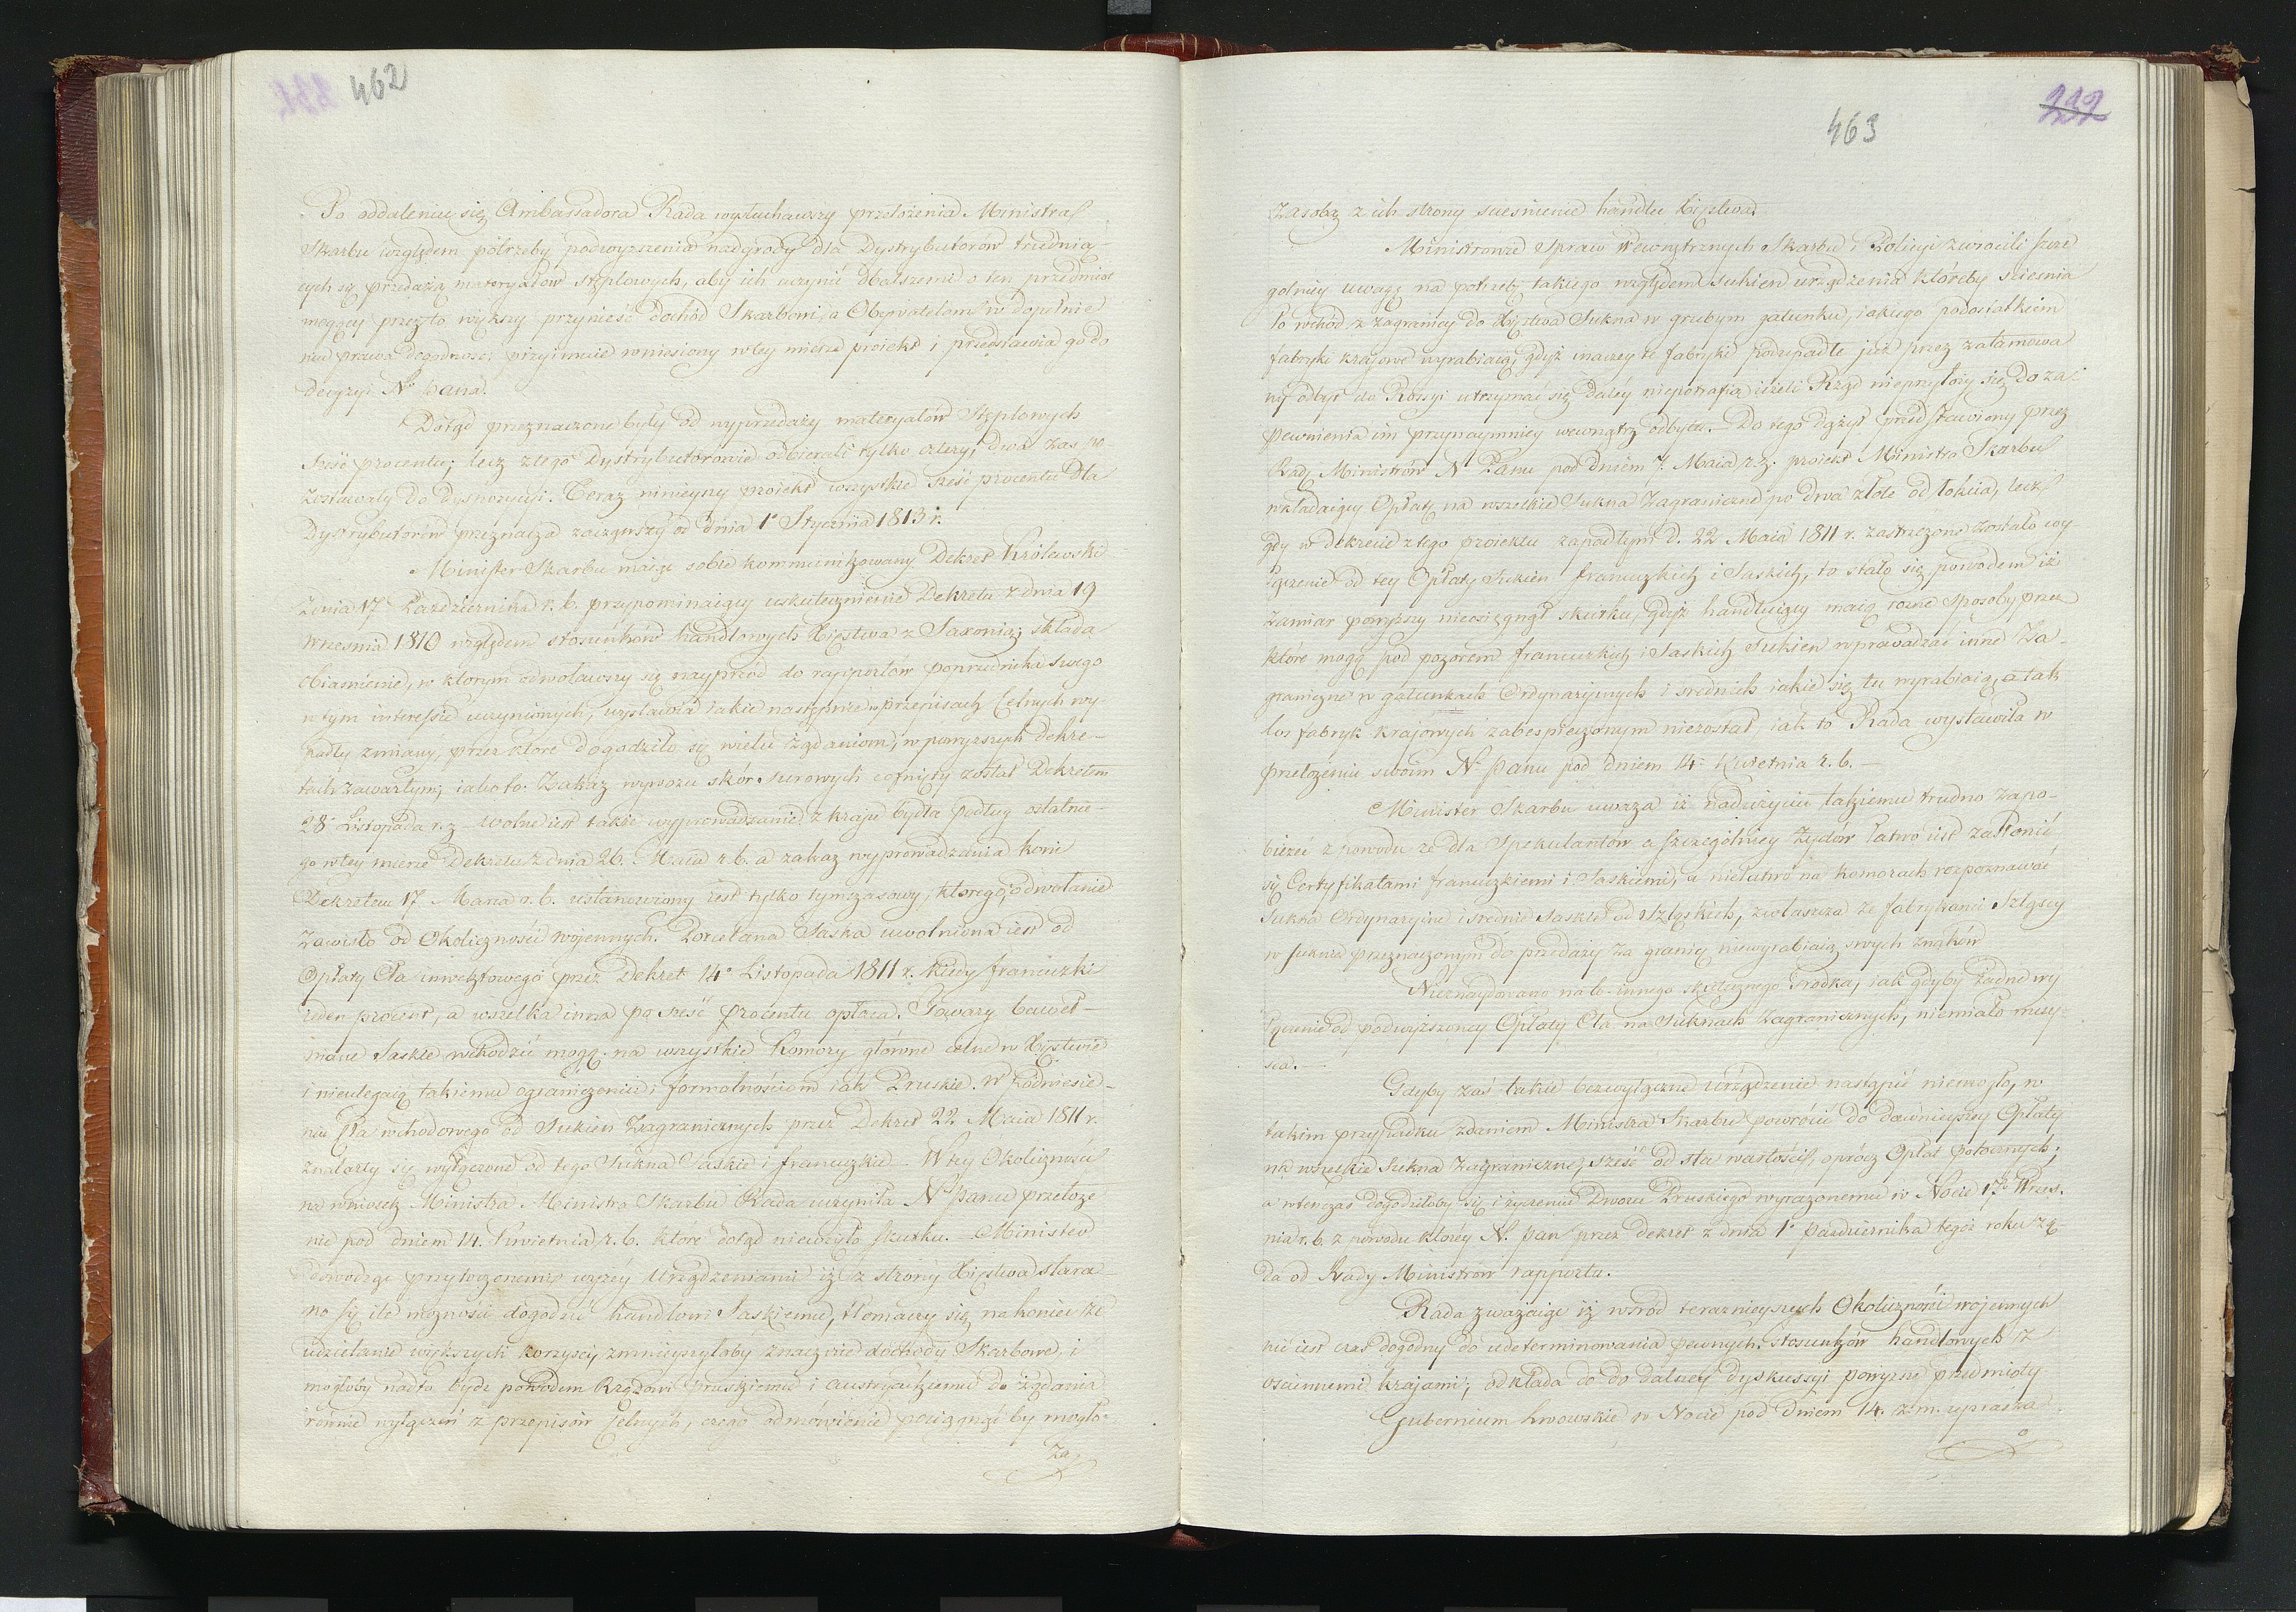 462
Po oddaleniu się Ambassadora Rada wysłuchawszy przełożenia Ministra
Skarbu względem potrzeby podwyższenia nadgrody dla Dystrybutorów trudnią-
cych się przedażą materyałów stęplowych, aby ich uczynić dbalszemi o ten przedmiot
mogący przezto większy przynieść dochód Skarbowi, a Obywatelom w dopełnie
niu prawa dogodność; przyimuie wniesiony w tey mierze proiekt i przedstawia go do
decyzyi N° Pana.
Dotąd przeznaczone były od wyprzedaży materyałów Stęplowych
sześć procentu; lecz z tego Dystrybutorowie odbierali tylko cztery, dwa zaś po-
zostawały do dyspozycyi. Teraz ninieyszy proiekt wszystkie sześć procentu dla
Dystrybutorów przeznacza zacząwszy od dnia 1° Stycznia 1813 r.
Minister Skarbu maiąc sobie kommunikowany Dekret Królewski
z dnia 17 Października r. b. przypominaiący uskutecznienie Dekretu z dnia 19
Września 1810 względem stosunków handlowych Xięstwa z Saxonią; składa
obiaśnienie, w którym odwoławszy się nayprzód do rapportów poprzednika swego
w tym interessie uczynionych, wystawia iakie następnie w przepisach Celnych wy-
padły zmiany, przez które dogodziło się wielu żądaniom, w powyższych Dekre-
tach zawartym; iako to: Zakaz wywozu skór surowych cofnięty został Dekretem
28 Listopada r. z. wolne iest także wyprowadzanie z kraju bydła podług ostatnie-
go w tey mierze Dekretu z dnia 26. Maia r. b. a zakaz wyprowadzania koni
Dekretem 17 Marca r. b. ustanowiony iest tylko tymczasowy, którego odwołanie
zawisło od Okoliczności woiennych. Porcelana Saska uwolniona iest od
Opłaty Cła inwektowego przez Dekret 14° Listopada 1811 r. kiedy francuzki
ieden procent, a wszelka inna po sześć procentu opłaca. Towary baweł-
niane Saskie wchodzić mogą na wszystkie Komory główne celne w Xięstwie
i nieulegaią takiemu ograniczeniu i formalnościom iak Pruskie. W podniesie-
niu Cła wchodowego od Sukien Zagranicznych przez Dekret 22 Maia 1811 r.
znalazły się wyłączone od tego Sukna Saskie i francuzkie. W tey Okoliczności
na wniosek Ministra Ministra Skarbu Rada uczyniła N° Panu przełoże
nie pod dniem 14. Kwietnia r. b. które dotąd niewzięło skutku. Minister
dowodząc przytoczonemi wyżey Urządzeniami iż z strony Xięstwa stara
no się ile możności dogodzić handlowi Saskiemu, tłomaczy się na koniec że
udzielanie większych korzyści zmnieyszyłoby znacznie dochody Skarbowe, i
mogłoby nadto bydź powodem Rządowi pruskiemu i austryackiemu do żądania
równie wyłączeń z przepisów Celnych, czego odmówienie pociągnąć by mogło
Za
232
463
Zasobą z ich strony ścieśnienie handlu Xięstwa.
Ministrowie Spraw Wewnętrznych Skarbu i Policyi zwrócili szcze
gólniey uwagę na potrzebę takiego względem sukien urządzenia któreby ścieśnia
ło wchód z zagranicy do Xięstwa Sukna w grubym gatunku, iakiego podostatkiem
fabryki kraiowe wyrabiaią, gdyż inaczey te fabryki podupadłe już przez zatamowa
ny odbyt do Rossyi utrzymać się daley niepotrafią ieżeli Rząd nieprzyłoży się do za-
pewnienia im przynaymniey wewnątrz odbytu. Do tego dążył przedstawiony przez
Radę Ministrów N° Panu pod dniem 7. Maia r. z. proiekt Ministra Skarbu
wkładaiący Opłatę na wszelkie Sukna Zagraniczne po dwa złote od łokcia, lecz
gdy w dekrecie z tego proiektu zapadłym d. 22 Maia 1811 r. zastrzeżone zostało wy-
łączenie od tey Opłaty Sukien francuzkich i Saskich, to stało się powodem iż
zamiar powyższy nieosięgnął skutku, gdyż handluiący maią rożne sposoby przez
które mogą pod pozorem francuzkich i Saskich Sukien wprowadzać inne Za-
graniczne w gatunkach Ordynaryinych i średnich iakie się tu wyrabiaią, a tak
los fabryk kraiowych zabespieczonym niezostał, iak to Rada wystawiła w
przełożeniu swoim N° Panu pod dniem 14° Kwietnia r. b. —
Minister Skarbu uważa iż nadużyciu takiemu trudno zapo-
bieżeć z powodu że dla Spekulantów a szczególniey Żydów łatwo iest zasłonić
się Certyfikatami francuzkiemi i Saskiemi, a niełatwo na komorach rozpoznawać
Sukna Ordynaryine i średnie Saskie od Szląskich, zwłaszcza że fabrykanci Szląscy
w suknie przeznaczonym do przedaży za granicę niewyrabiaią swych znaków
Nieznaydowano na to innego skutecznego środka, iak gdyby żadne wy
łączenie od podwyższoney Opłaty Cła na Suknach Zagranicznych, niemiało miey-
sca. —
Gdyby zaś takie bezwyłączne urządzenie nastąpić niemogło, w
takim przypadku zdaniem Ministra Skarbu powrócić do dawnieyszey Opłaty
na wszelkie Sukna Zagraniczne, sześć od sta wartości, oprócz Opłat pobocznych;
a wtenczas dogodziłoby się i życzeniu Dworu Pruskiego wyrażonemu w Nocie 17° Wrześ.
nia r. b. z powodu którey N. Pan przez dekret z dnia 1° października tegoż roku żą
da od Rady Ministrów rapportu.
Rada zważaiąc iż wśród teraznieyszych Okoliczności woiennych
nie iest czas dogodny do udeterminowania pewnych stosunków handlowych z
ościennemi kraiami; odkłada do do dalszey dyskussyi powyższe przedmioty.
Gubernium Lwowskie w Nocie pod dniem 14. z. m. uprasza